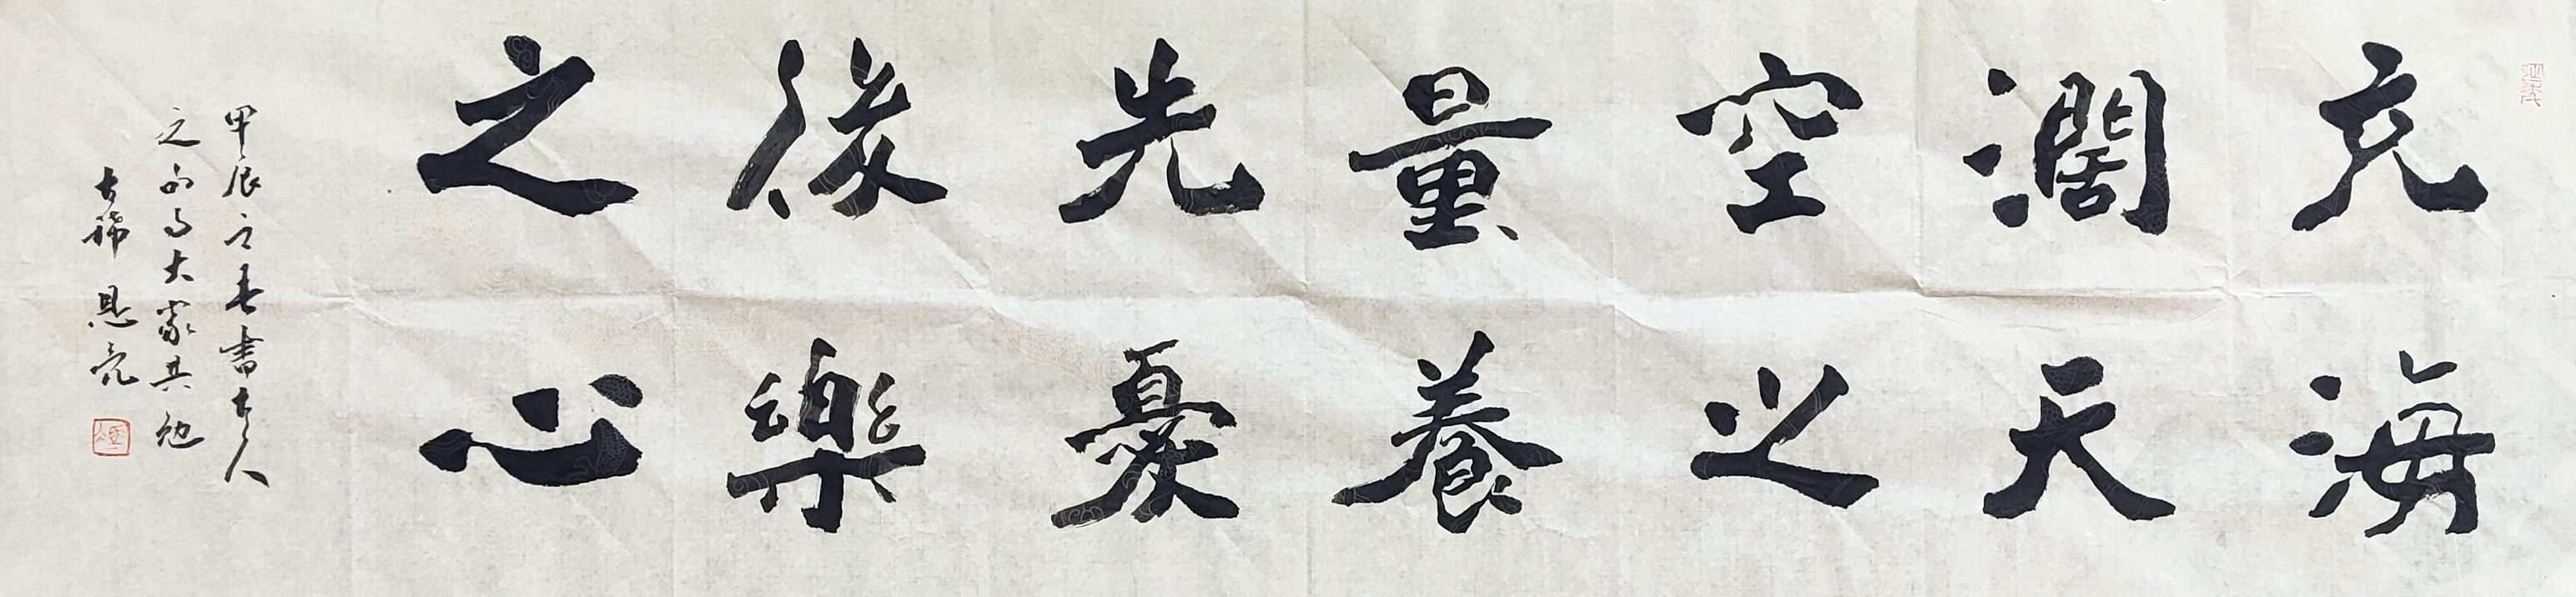 充海
濶天
空之
量養
先憂
後樂
之心
甲辰之春書古人
之句与大家共勉
古稀恩亮